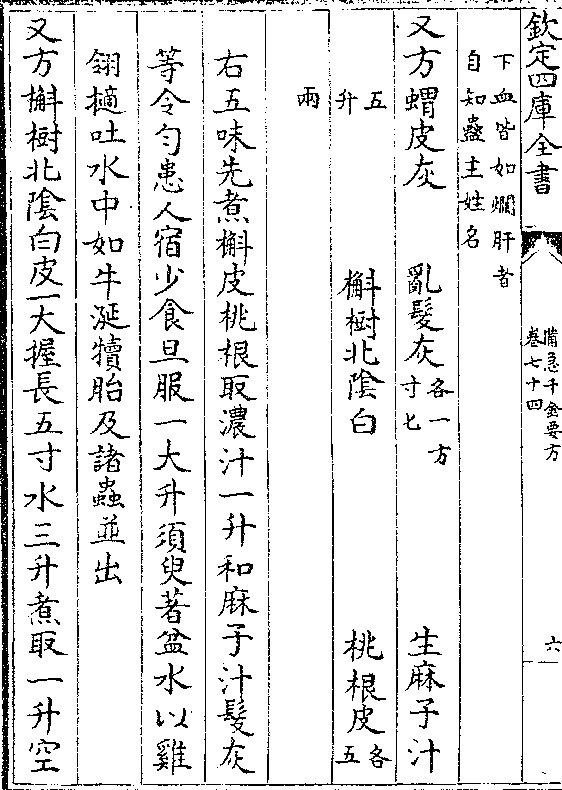 欽定四庫全書
備急千金要方
卷七十四
六
下血皆如爛肝者
自知蠱主姓名
又方蝟皮灰 亂髮灰各一方寸匕 生麻子汁
五升 槲樹北陰白 桃根皮各五
兩
右五味先煮槲皮桃根取濃汁一升和麻子汁髮灰
等令勻患人宿少食旦服一大升須臾著盆水以雞
翎擿吐水中如牛涎犢胎及諸蟲並出
又方槲樹北陰白皮一大握長五寸水三升煮取一升空